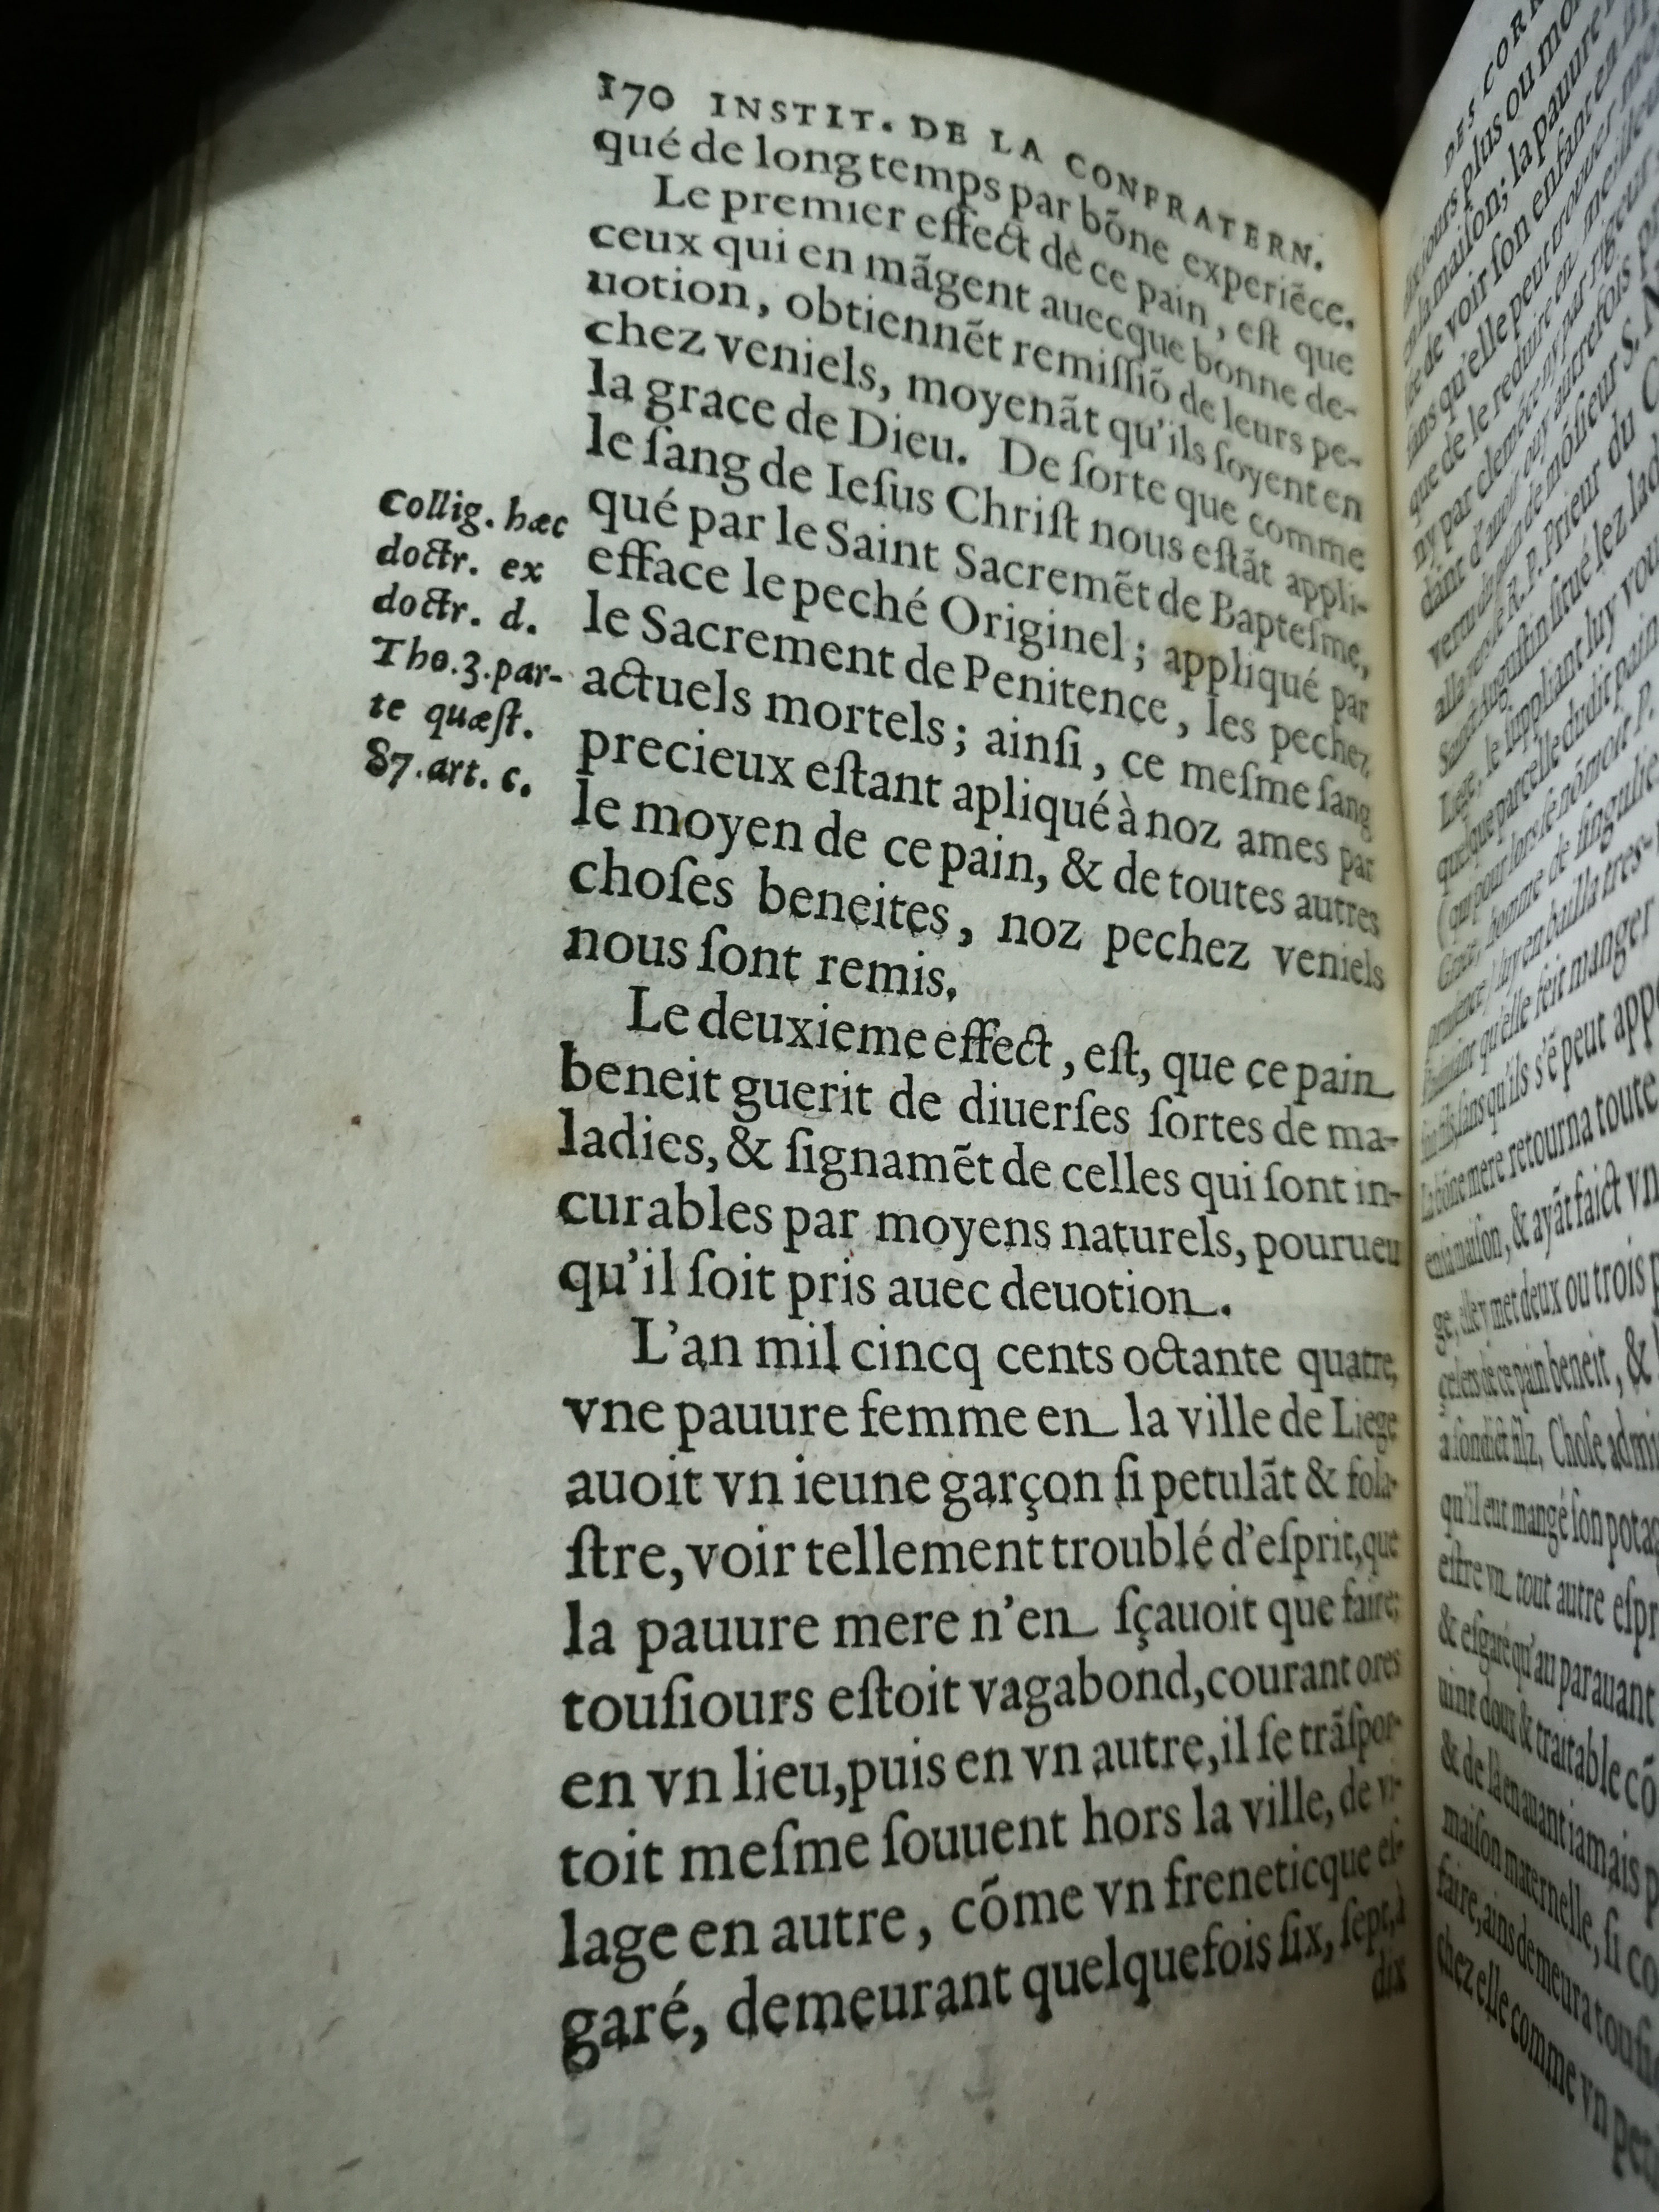 170 INSTIT. DE LA CONFRATERN.
qué de long temps par bõne experiẽce.
Le premier effect de ce pain, eſt que
ceux qui en mãgent auecque bonne de-
uotion, obtiennẽt remiſſiõ de leurs pe-
chez veniels, moyenãt qu'ils ſoyent en
la grace de Dieu. De ſorte que comme
le ſang de Ieſus Chriſt nous eſtãt appli-
qué par le Saint Sacremẽt de Bapteſme,
efface le peché Originel; appliqué par
le Sacrement de Penitence, les pechez
actuels mortels; ainſi, ce meſme ſang
precieux eſtant apliqué à noz ames par
le moyen de ce pain, & de toutes autres
choſes beneites, noz pechez veniels
nous ſont remis.
Collig. hæc
doctr. ex
doctr. d.
Tho. 3. par-
te quæſt.
87. art. c.
Le deuxieme effect, eſt, que ce pain
beneit guerit de diuerſes ſortes de ma-
ladies, & ſignamẽt de celles qui ſont in-
curables par moyens naturels, pourueu
qu'il ſoit pris auec deuotion.
L'an mil cincq cents octante quatre,
vne pauure femme en la ville de Liege
auoit vn ieune garçon ſi petulãt & fola-
ſtre, voir tellement troublé d'eſprit, que
la pauure mere n'en ſçauoit que faire;
touſiours eſtoit vagabond, courant ores
en vn lieu, puis en vn autre, il ſe trãſpor-
toit meſme ſouuent hors la ville, de vi-
lage en autre, cõme vn freneticque eſ-
garé, demeurant quelquefois ſix, ſept, à
dix
DES
plus ou
la maiſon; la pauure
de voir ſon enfant en
qu'elle peut trouuer
que de le reduire en
ny par clemẽce ny par rigeur
R. P. Prieur du
le ſuppliant luy
quelque parcelle dudit pain
homme de
luy en bailla tres-
qu'elle feit manger
qu'ils s'ẽ peut
bõne mere retourna toute
maiſon, & ayãt faict vn
ge, elle y met deux ou trois
de ce pain beneit, &
a ſondict filz, Choſe
qu'il eut mangé ſon
eſtre vn tout autre
& eſgaré qu'au parauant
uint doux & traitable cõ
& de là en auant iamais
maiſon maternelle, ſi
faire, ains demeura
chez elle comme vn